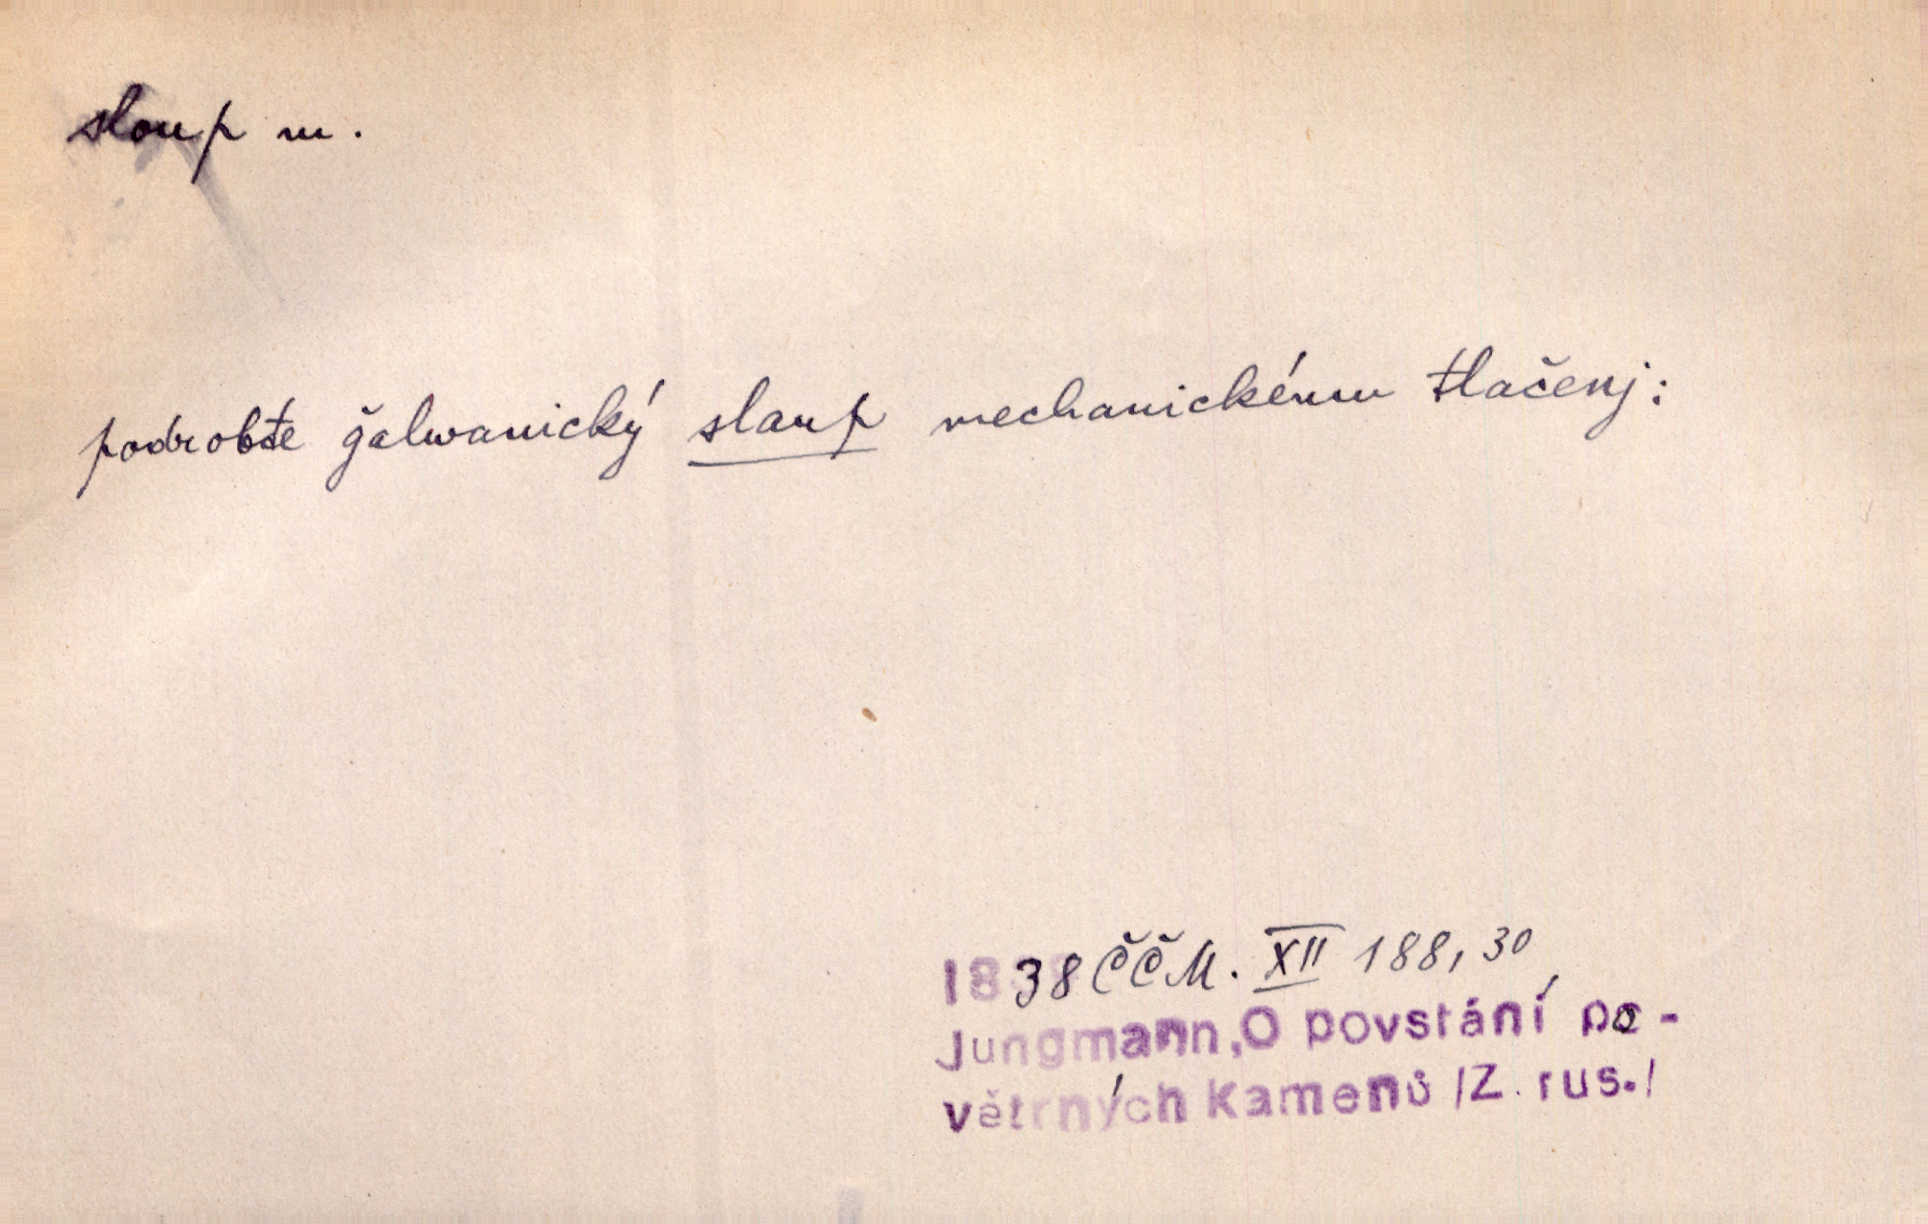 sloup m.
podrobte ğalwanický slaup mechanickému tlačenj:
1838 ČČM. XII 188, 30
Jungmann, O povstání po-
větrných kamenů /Z. rus./